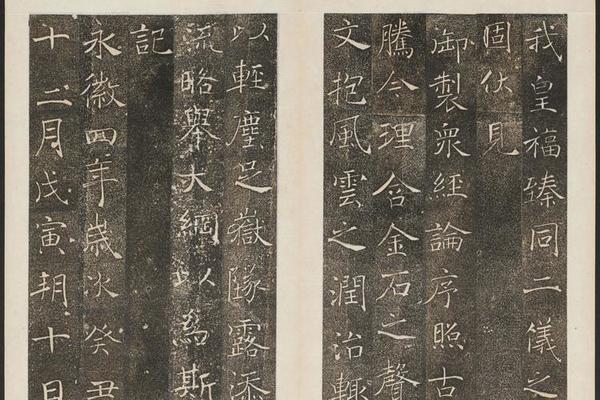 我皇福臻同二儀之
固伏見
御製衆經論序照古
騰今理含金石之聲
文抱風雲之潤治輙
以輊塵足嶽墜露添
流略舉大綱以爲斯
記
永徽四年歲次癸丑
十二月戊寅朔十日